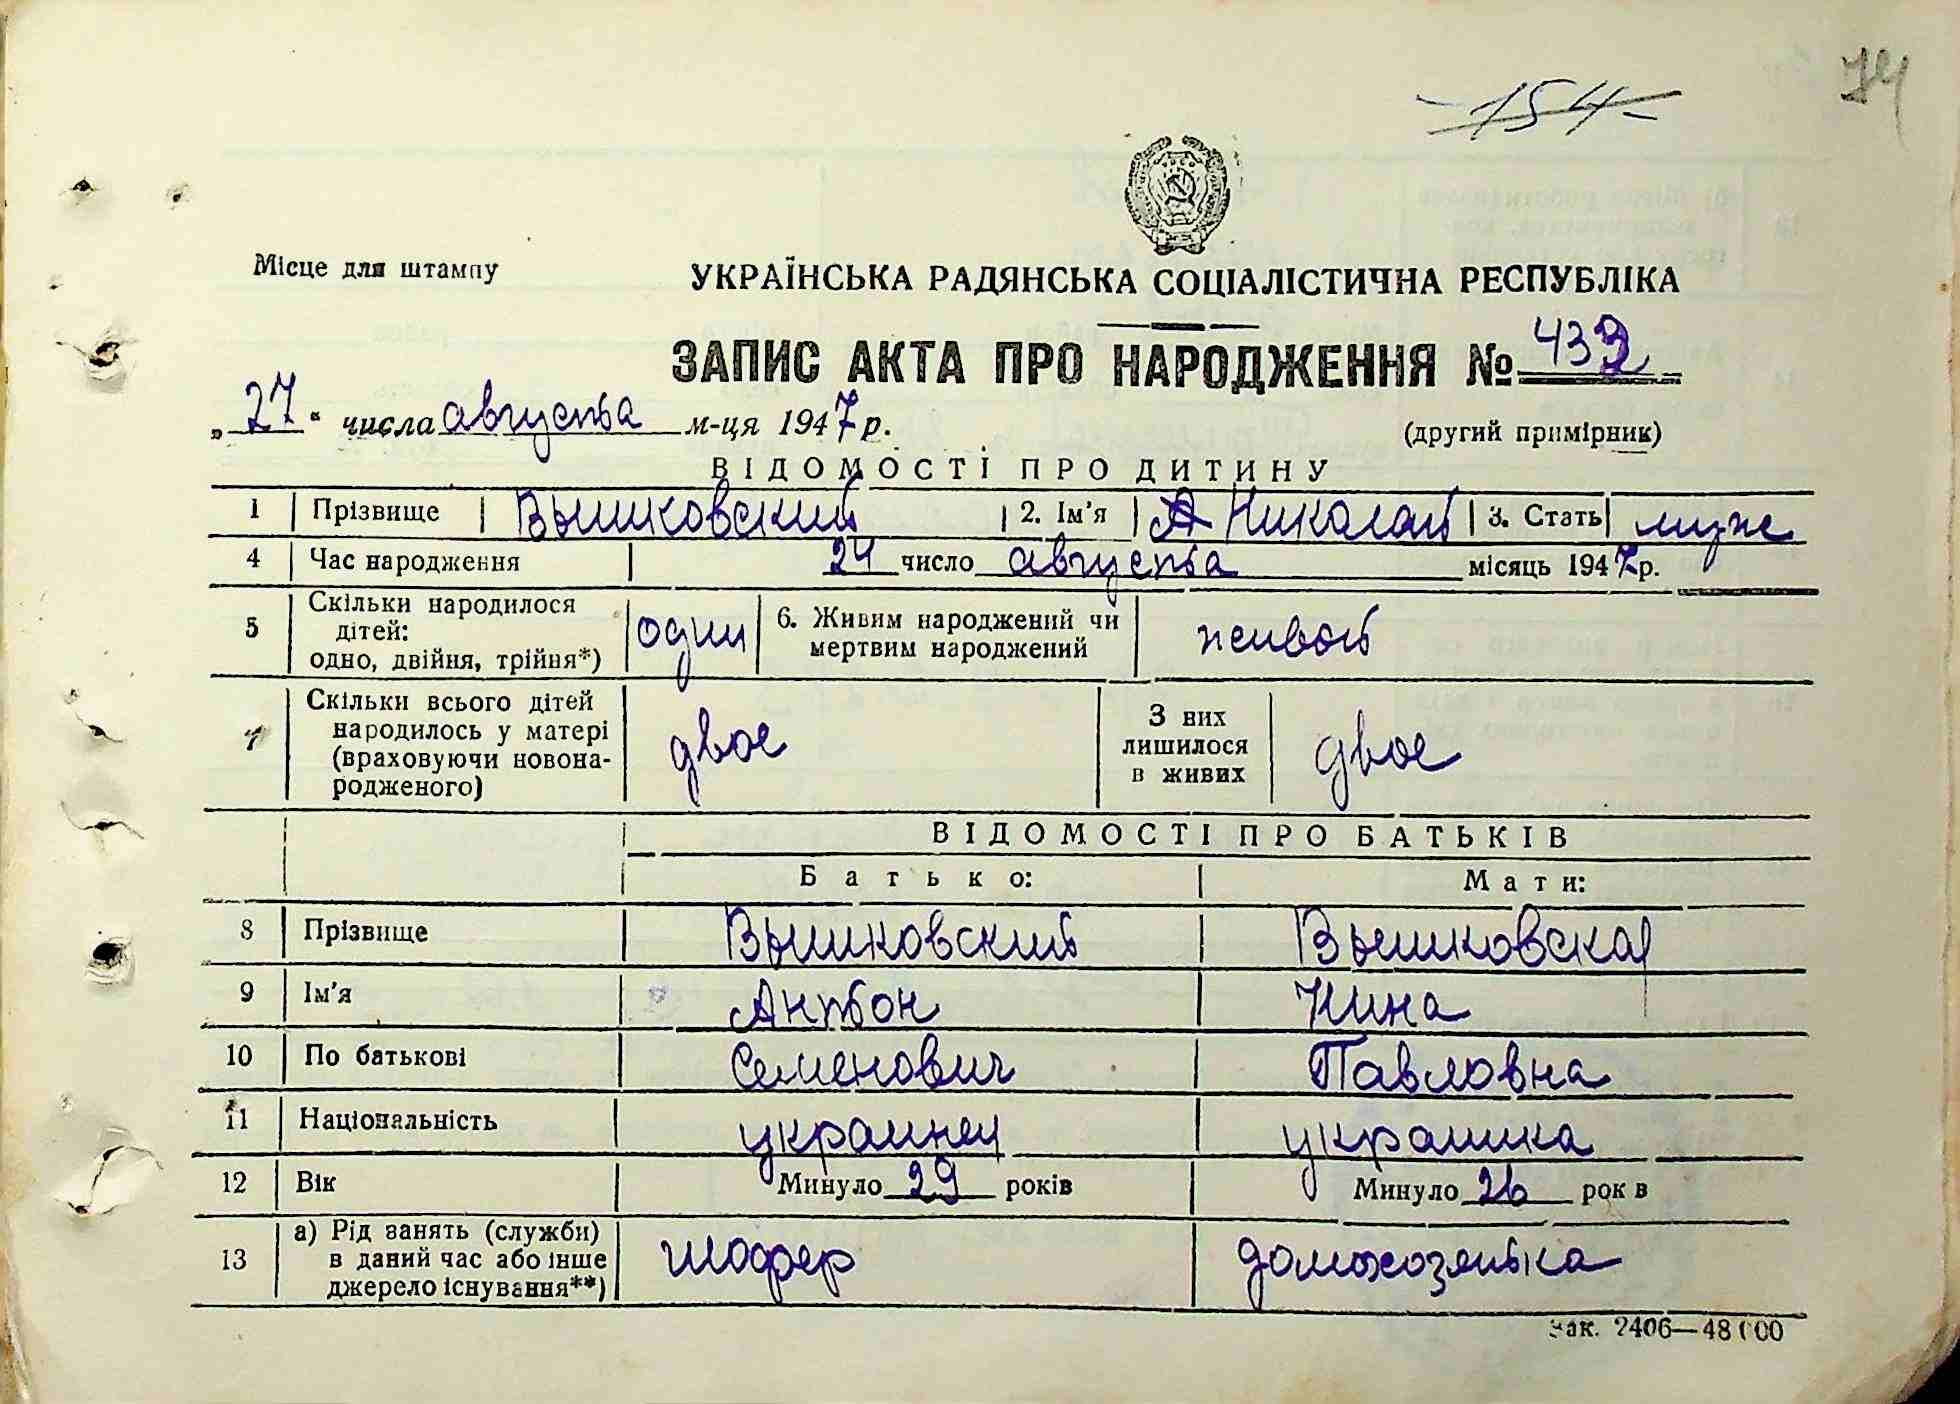 154
74
Місце для штампу
УКРАЇНСЬКА РАДЯНСЬКА СОЦІАЛІСТИЧНА РЕСПУБЛІКА
ЗАПИС АКТА ПРО НАРОДЖЕННЯ № 433
„27“ числа августа м-ця 1947 р.
(другий примірник)
ВІДОМОСТІ ПРО ДИТИНУ
1 Прізвище Вышковский 2. Ім'я Николай 3. Стать муж
4 Час народження 24 число августа місяць 1947 р.
5 Скільки народилося дітей: одно, двійня, трійня*) один 6. Живим народжений чи мертвим народжений живой
7 Скільки всього дітей народилось у матері (враховуючи новонародженого) двое З них лишилося в живих двое
ВІДОМОСТІ ПРО БАТЬКІВ
Батько: Мати:
8 Прізвище Вышковский Вышковская
9 Ім'я Антон Нина
10 По батькові Семенович Павловна
11 Національність украинец украинка
12 Вік Минуло 29 років Минуло 26 рок в
13 а) Рід занять (служби) в даний час або інше джерело існування**) шофер домохозяйка
Зак. 2406—48000